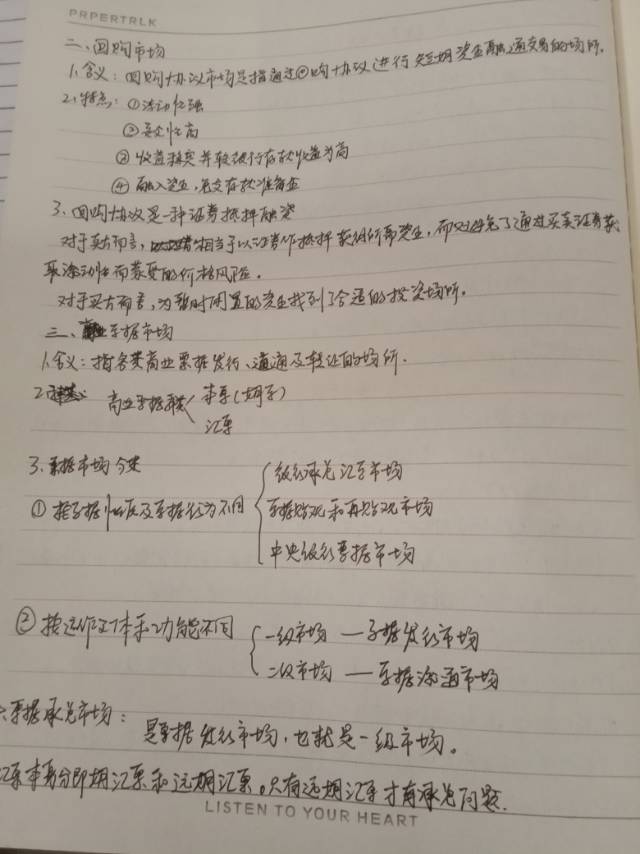 PRPERTRLK
二、回购市场
1、含义：回购协议市场是指通过回购协议进行短期资金融通交易的场所。
2、特点：①流动性强
②安全性高
③收益稳定并较银行存款收益为高
④融入资金，免交存款准备金
3、回购协议是一种证券抵押融资
对于卖方而言，相当于以证券作抵押获得所需资金，而又避免了通过买卖证券获
取流动性而蒙受的价格风险。
对于买方而言，为暂时闲置的资金找到了合适的投资场所。
三、票据市场
1、含义：指各类商业票据发行、流通及转让的场所.
2、 商业票据 本票(期票)
汇票
3、票据市场分类
银行承兑汇票市场
①按票据性质及票据行为不同 票据贴现和再贴现市场
中央银行票据市场
②按运作主体和功能不同 一级市场 — 票据发行市场
二级市场 — 票据流通市场
票据承兑市场：
是票据发行市场，也就是一级市场。
汇票本身分即期汇票和远期汇票。只有远期汇票才有承兑问题.
LISTEN TO YOUR HEART